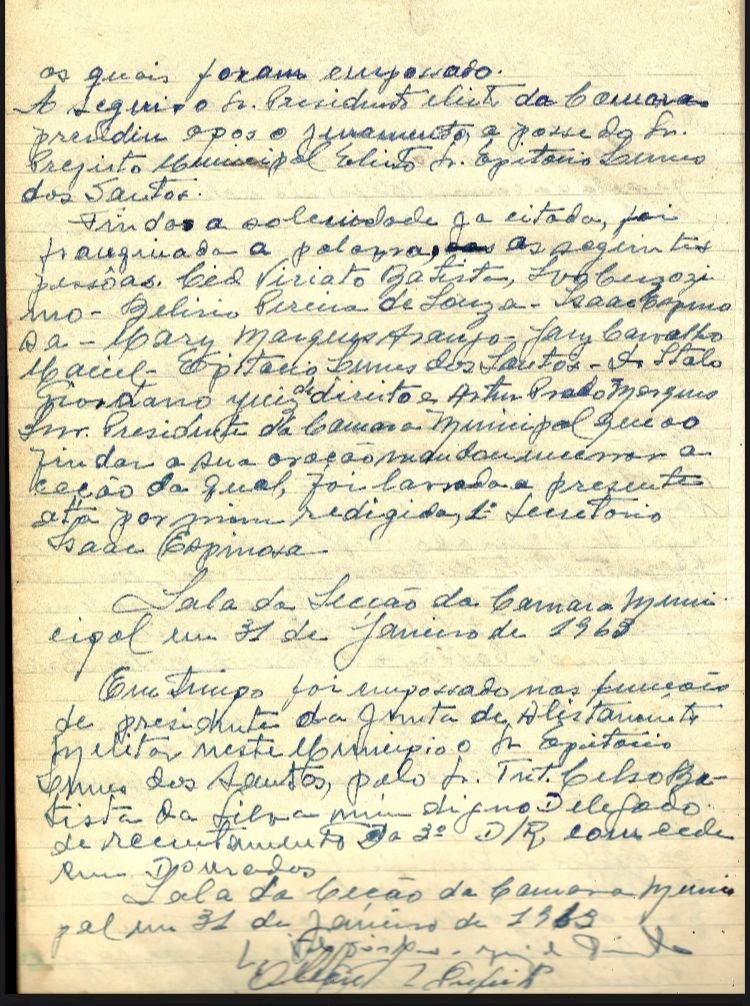 os quais foram empossado.
A seguir o Sr. Presidente eleito da Camara
presidiu apos o juramento, a posse do Sr.
Prefeito Municipal Eleito Sr. Epitacio Lemes
dos Santos.
Finda a solenidade ja citada, foi
franquiada a palavra, as seguintes
pessôas. Ced Viriato Batista,
mo - Belirio Pereira de Souza - Isaac Espino
sa - Mary Marques Araujo - Jary Carvalho
Maciel - Epitacio Lemes dos Santos - Dr Italo
Giordano juiz de direito e Artur Prado Marques
Snr. Presidente da Camara Municipal que ao
findar a sua oração mandou encerrar a
ceção da qual, foi lavrada a presente
ata por mim redigida, 1º Secretorio
Isaac Espinosa
Sala da Secção da Camara Muni
cipal em 31 de Janeiro de 1963
Em tempo foi empossado nas funcois
de presidente da Junta de Alistamento
Militar neste Municipio o Sr Epitacio
Lemes dos Santos, pelo Sr. Tnt. Celso Ba-
tista da Silva mui digno Delegado
de recrutamento da 3ª D/R, com cede
em Dourados
Sala da Ceção da Camara Muni
pal em 31 de Janeiro de 1963